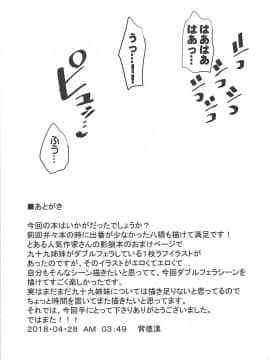 はあはあ
はあっ…
うっ…！！
ピュッ
ふう…
■あとがき
今回の本はいかがだったでしょうか？
前回弁々本の時に出番が少なかった八橋も描けて満足です！
とある人気作家さんの影狼本のおまけページで
九十九姉妹がダブルフェラしている1枚ラフイラストが
あったのですが、そのイラストがエロくてエロくて…
自分もそんなシーン描きたいと思ってて、今回ダブルフェラシーンを
描けてすごく嬉しかったです。
実はまだまだ九十九姉妹については描き足りないと思ってるので
ちょっと時間を置いてまた描きたいと思ってます。
それでは、今回手にとって下さりありがとうございました。
ではまた！！！
2018・04・28　AM　03:49　背徳漢